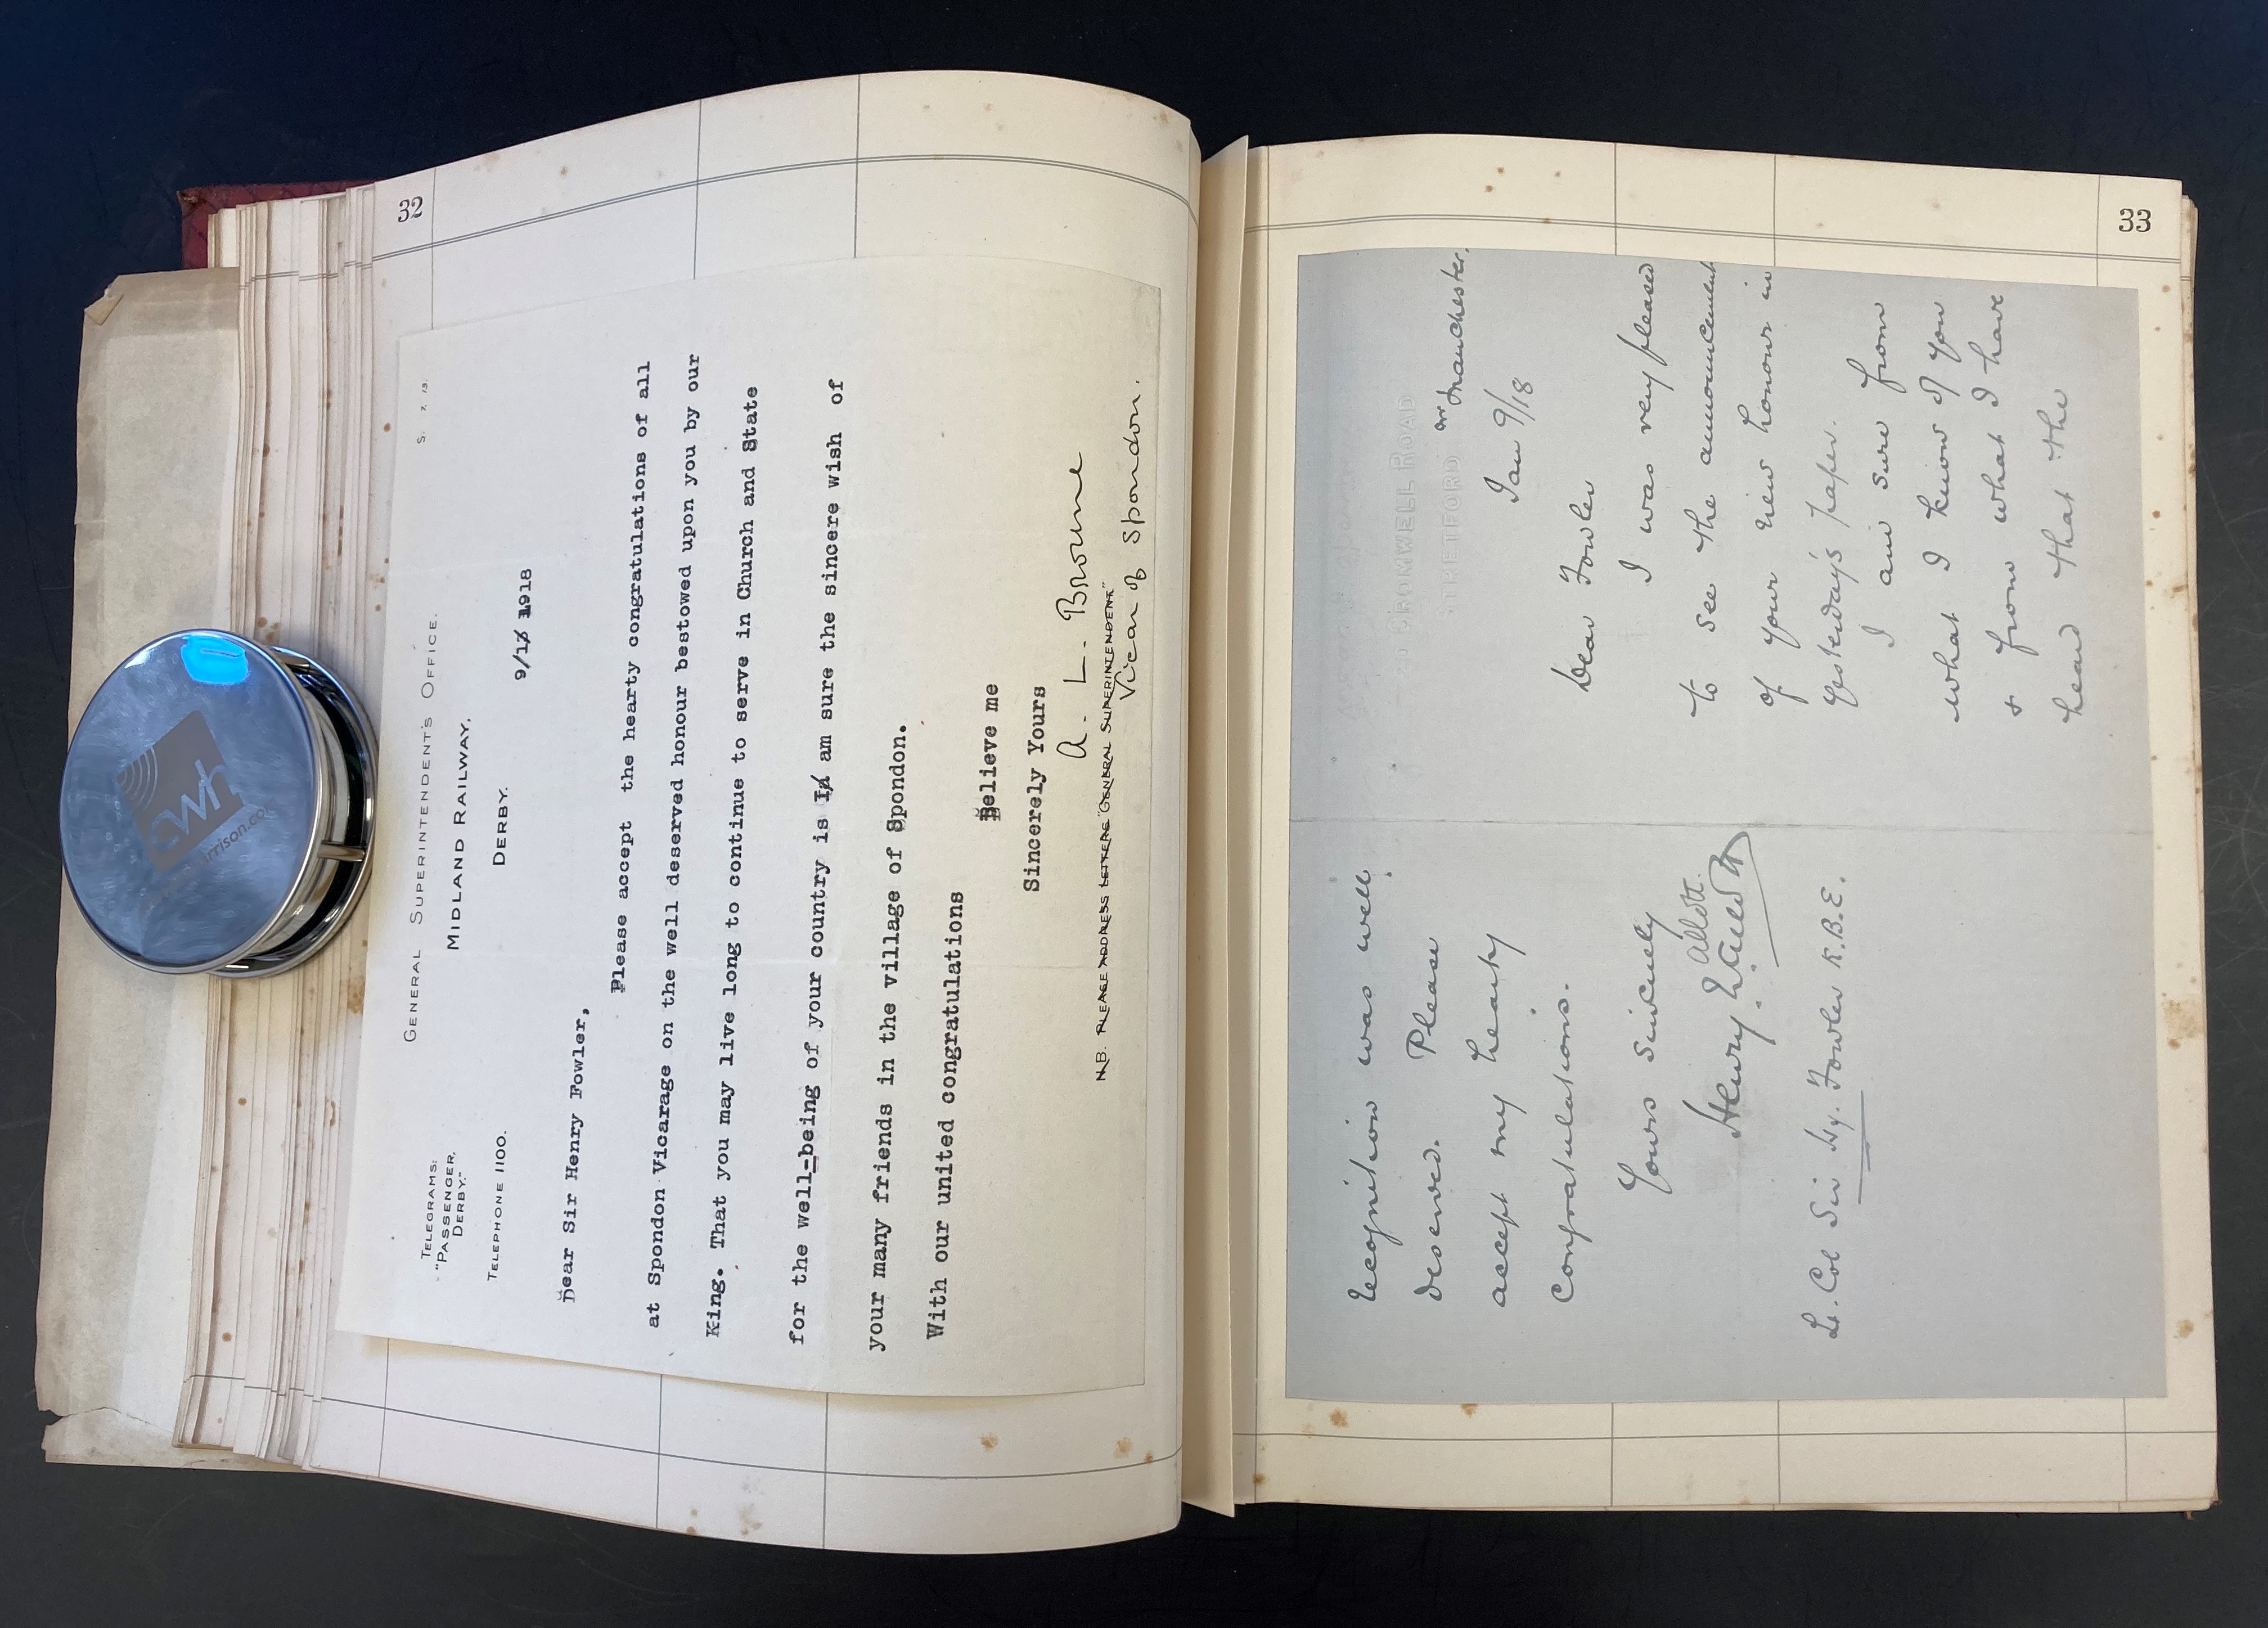 32
S. 7. 13.
GENERAL SUPERINTENDENT'S OFFICE.
MIDLAND RAILWAY,
DERBY.
TELEGRAMS:
"PASSENGER,
DERBY."
TELEPHONE 1100.
9/1/ 1918
Dear Sir Henry Fowler,
Please accept the hearty congratulations of all
at Spondon Vicarage on the well deserved honour bestowed upon you by our
King. That you may live long to continue to serve in Church and State
for the well-being of your country is I am sure the sincere wish of
your many friends in the village of Spondon.
With our united congratulations
Believe me
Sincerely Yours
A. L. Browne
N.B. PLEASE ADDRESS LETTERS "GENERAL SUPERINTENDENT"
Vicar of Spondon.
33
CROMWELL ROAD
STRETFORD
nr Manchester.
Jan 9/18
Dear Fowler
I was very pleased
to see the announcement
of your new honour in
yesterday's paper.
I am sure from
what I know of you
& from what I have
heard that the
recognition was well
deserved. Please
accept my hearty
congratulations.
Yours sincerely
Allott.
Henry
Lt. Col Sir Hy. Fowler K.B.E.
cwh